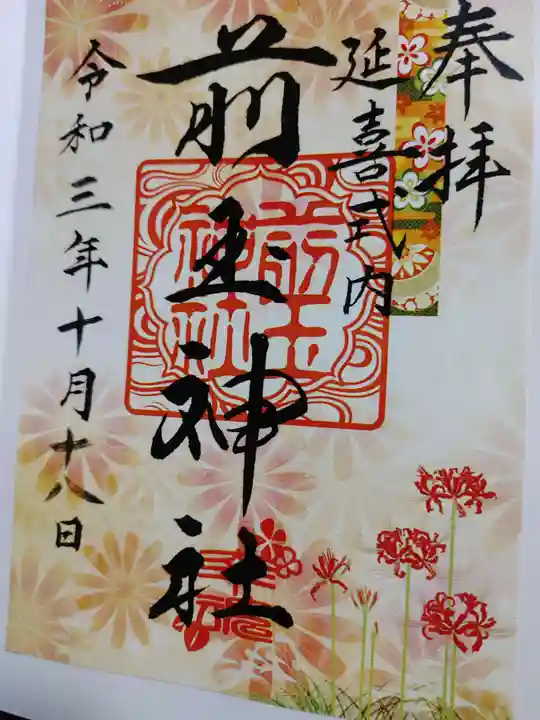 奉拝
延喜式内
前玉神社
前玉
神社
令和三年十月十八日